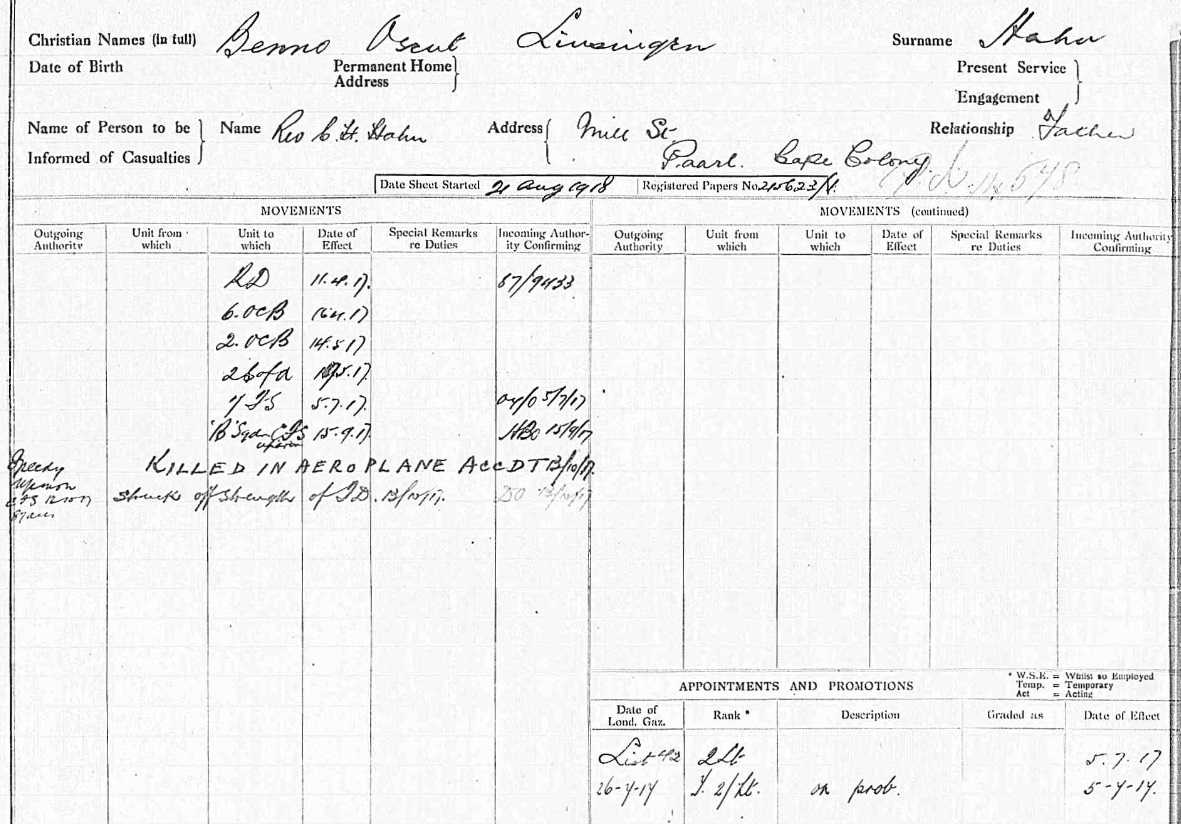 Christian Names (in full) Benno Oscar Linsingen Surname Hahn
Date of Birth Permanent Home Address Present Service Engagement
Name of Person to be Informed of Casualties Name Rev C. H. Hahn Address Mill St Relationship Father
Paarl. Cape Colony.
Date Sheet Started 21 Aug 1918 Registered Papers No.
MOVEMENTS
Outgoing Authority Unit from which Unit to which Date of Effect Special Remarks re Duties Incoming Authority Confirming
RD 11.4.17. 87/9433
6. OCB
2. OCB 14.5.17
5.17.
5.7.17. 5/7/17
"B" Sqdn CFS 15.9.17. 15/9/17
Upavon
KILLED IN AEROPLANE ACCDT 13/10/17.
Struck off Strength of 13/10/17. DO 13/10/17
MOVEMENTS (continued)
Outgoing Authority Unit from which Unit to which Date of Effect Special Remarks re Duties Incoming Authority Confirming
APPOINTMENTS AND PROMOTIONS
* W.S.E. = Whilst so Employed
Temp. = Temporary
Act = Acting
Date of Lond. Gaz. Rank * Description Graded as Date of Effect
List 2Lt 5.7.17
26-7-17 T. 2/Lt. on prob. 5-7-17.